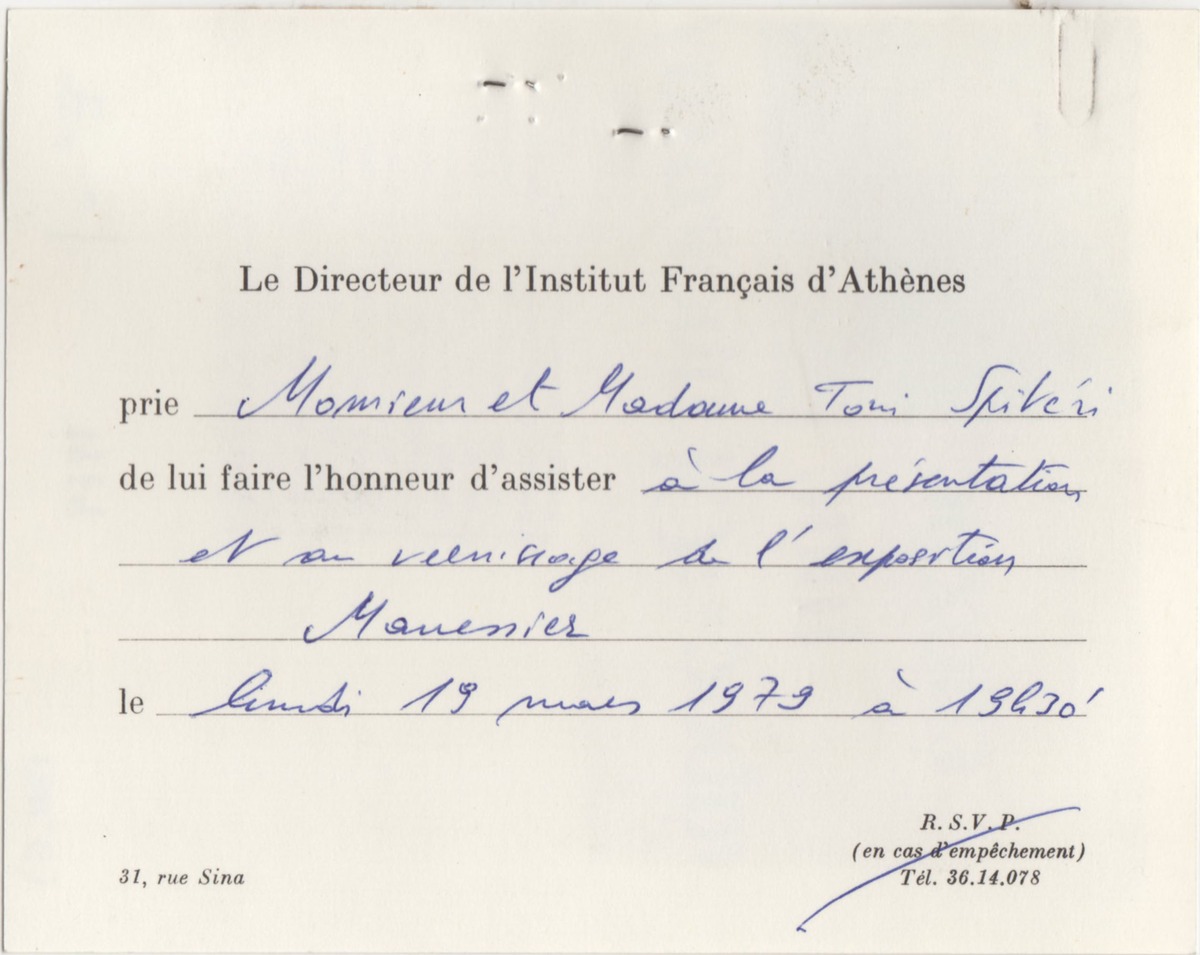 Le Directeur de l'Institut Français d'Athènes
prie Monsieur et Madame Toni Spitéri
de lui faire l'honneur d'assister à la présentation
et au vernissage de l'exposition
Manessier
le lundi 19 mars 1979 à 19h30'
R. S. V. P.
(en cas d'empêchement)
31, rue Sina Tél. 36.14.078